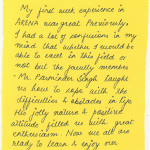 My first week experience in
ARENA was great. Previously
I had a lot of confusions in my
mind that whether I would be
able to excel in this field or
not but the faculty member
Mr. Parminder Singh taught
us how to cope with the
difficulties & obstacles in life
His jolly nature & positive
attitude filled us with great
enthusiasm. Now we all are
ready to learn & enjoy our